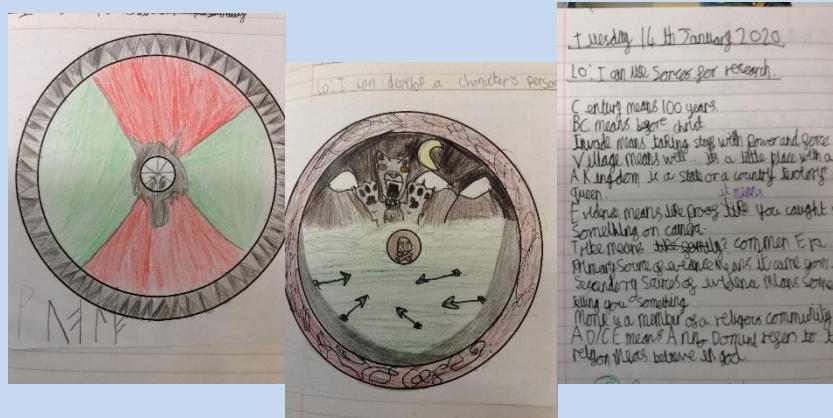 Lo: I can develop a characters person
Tuesday 14th January 2020
Lo: I can use Sorces for research.
Century means 100 years.
BC means before christ
Invade means taking stuff with Power and force
Village means well... its a little place with a
A Kingdom is a state or a country
Queen. it means
Evidence means like proof like you caught
Something on camera.
Tribe means common Era
Primary Source of evidence Means it came from
Secondary Sources of evidence Means Some
telling you something
Monk is a member of a religous community
AD/CE means Anno Domini refers to
religon Means believe in god.